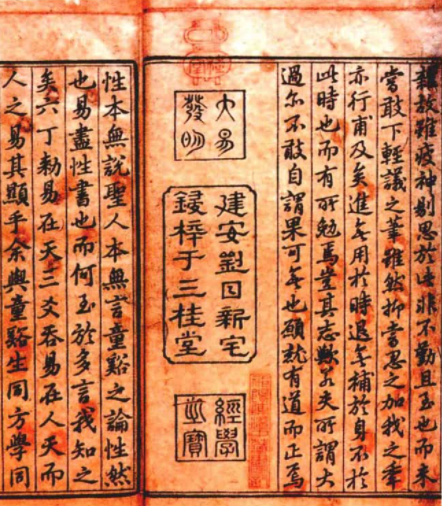 雖疲神剔思於此非不勤且至也而未
嘗敢下輕議之筆雖然抑嘗思之加我之年
亦行甫及矣進无用於時退无補於身不於
此時也而有所勉焉豈其志歟若夫所謂大
過尔不敢自謂果可无也願就有道而正焉
大易
發明
建安劉日新宅
鋟梓于三桂堂
經學
至寶
性本無說聖人本無言童谿之論性然
也易盡性書也而何至於多言我知之
矣六丁勅易在天三爻吞易在人天而
人之易其顯乎余與童谿生同方學同